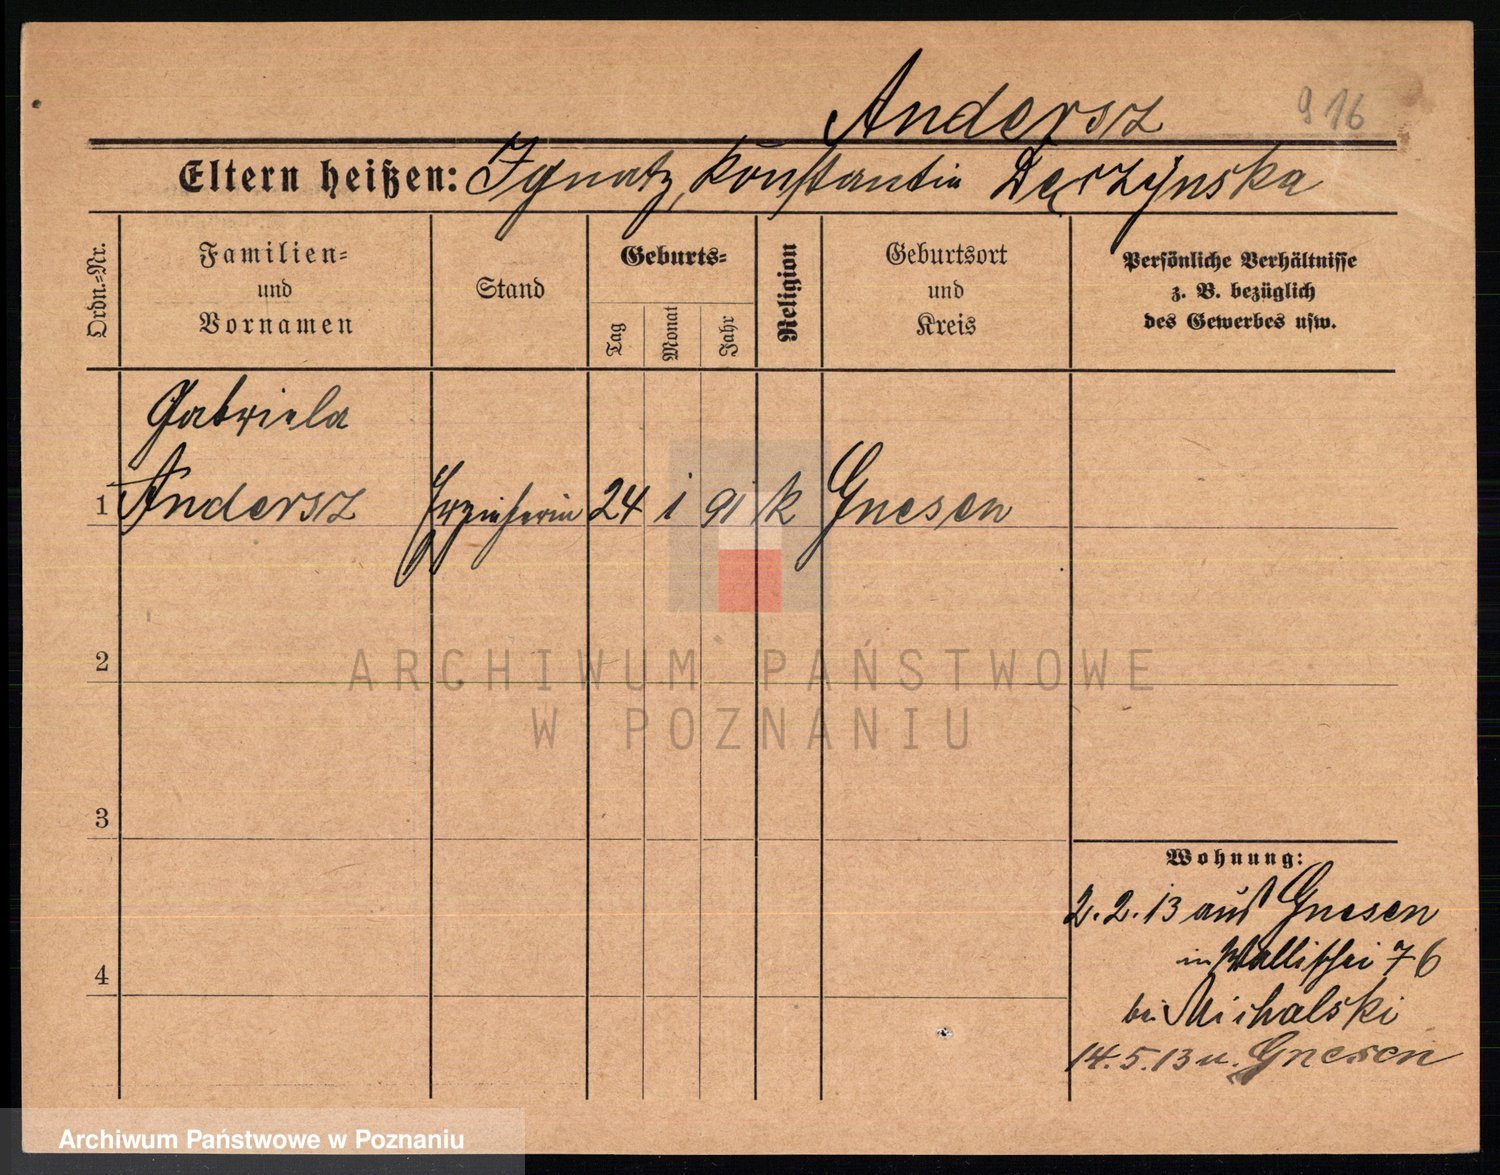 Andersz
916
Eltern heißen: Ignatz, Konstantin Dęrzÿnska
Ordn.-Nr.
Familien-
und
Vornamen
Stand
Geburts-
Tag
Monat
Jahr
Religion
Geburtsort
und
Kreis
Persönliche Verhältnisse
z. B. bezüglich
des Gewerbes usw.
Gabriela
1 Andersz Erzieherin 24 1 91 k Gnesen
2
ARCHIWUM PAŃSTWOWE
W POZNANIU
3
Wohnung:
2.2.13 aus Gnesen
in Wallischei 76
4
bei Michalski
14.5.13 n. Gnesen
Archiwum Państwowe w Poznaniu